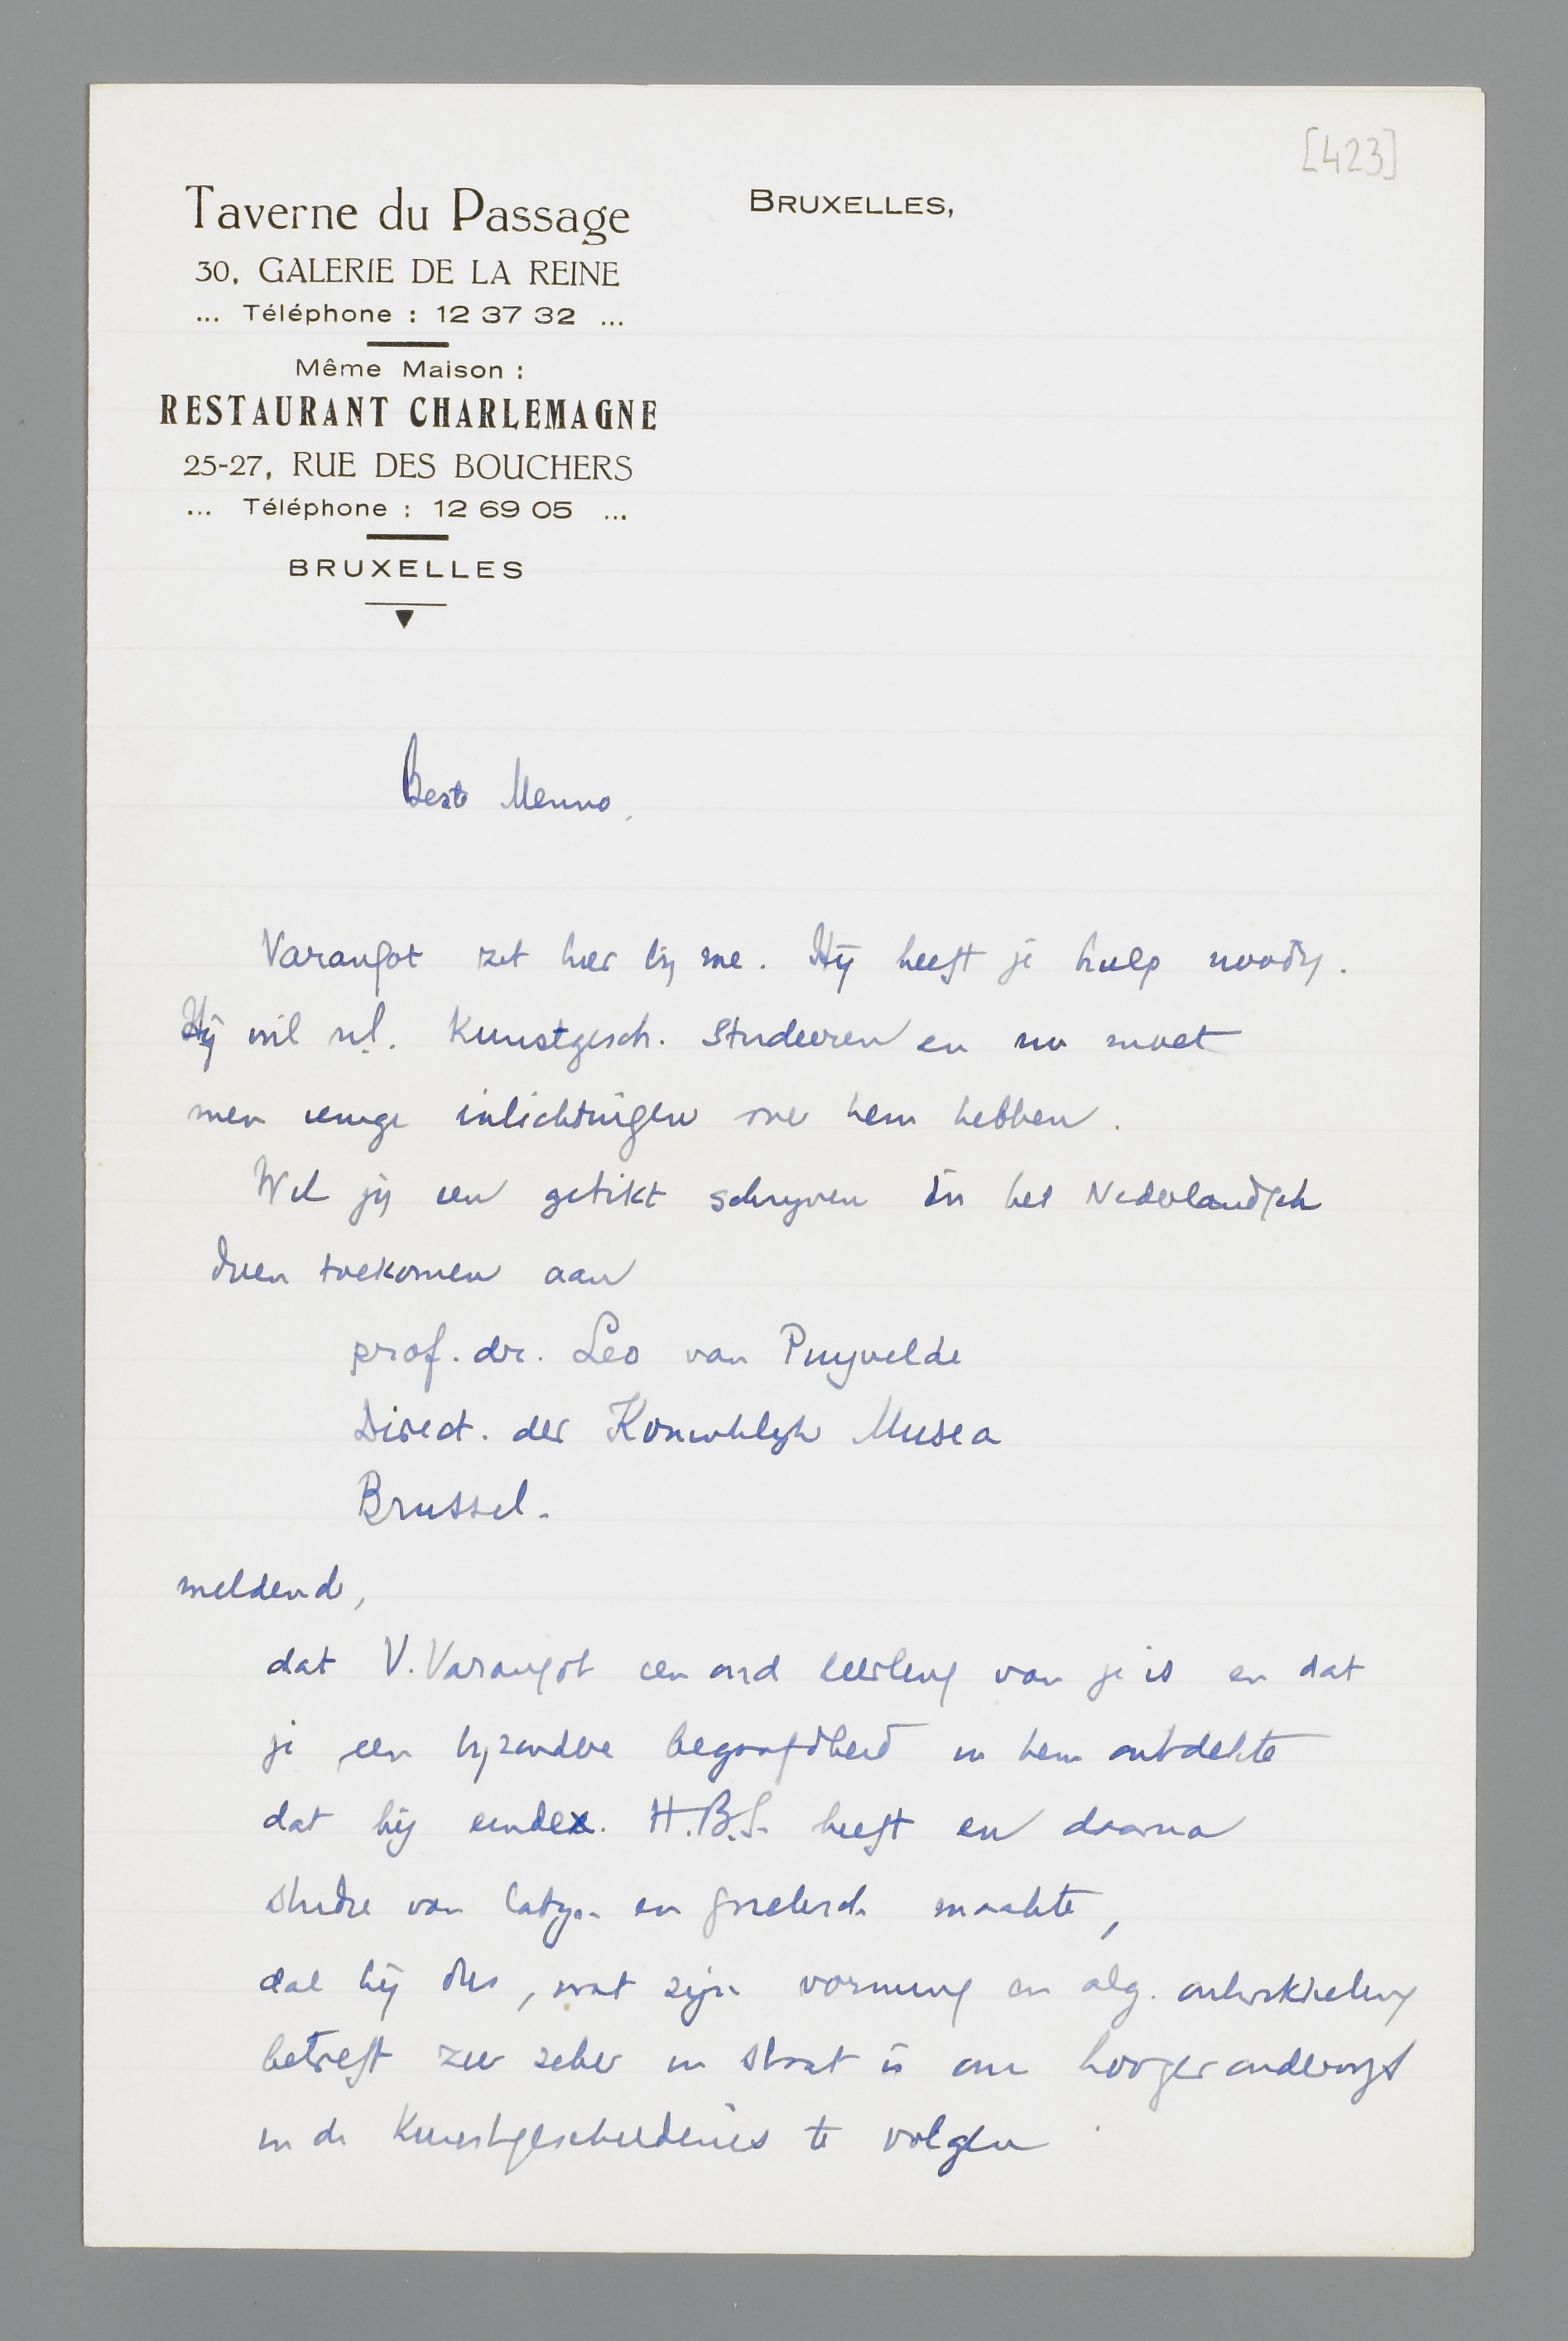 [423]
Taverne du Passage
30, GALERIE DE LA REINE
... Téléphone : 12 37 32 ...
Même Maison :
RESTAURANT CHARLEMAGNE
25-27, RUE DES BOUCHERS
... Téléphone : 12 69 05 ...
BRUXELLES
BRUXELLES,
Beste Menno,
Varangot zit hier bij me. Hij heeft je hulp noodig.
Hij wil nl. Kunstgesch. studeeren en nu moet
men eenige inlichtingen over hem hebben.
Wil jij een getikt schrijven in het Nederlandsch
doen toekomen aan
prof. dr. Leo van Puyvelde
Direct. der Koninklijke Musea
Brussel.
meldend,
dat V. Varangot een oud leerling van je is en dat
je een bijzondere begaafdheid in hem ontdekte
dat hij eindex. H.B.S. heeft en daarna
studie van latijn en grieksch maakte,
dat hij dus, wat zijn vorming en alg. ontwikkeling
betreft zeer zeker in staat is om hooger onderwijs
in de Kunstgeschiedenis te volgen.